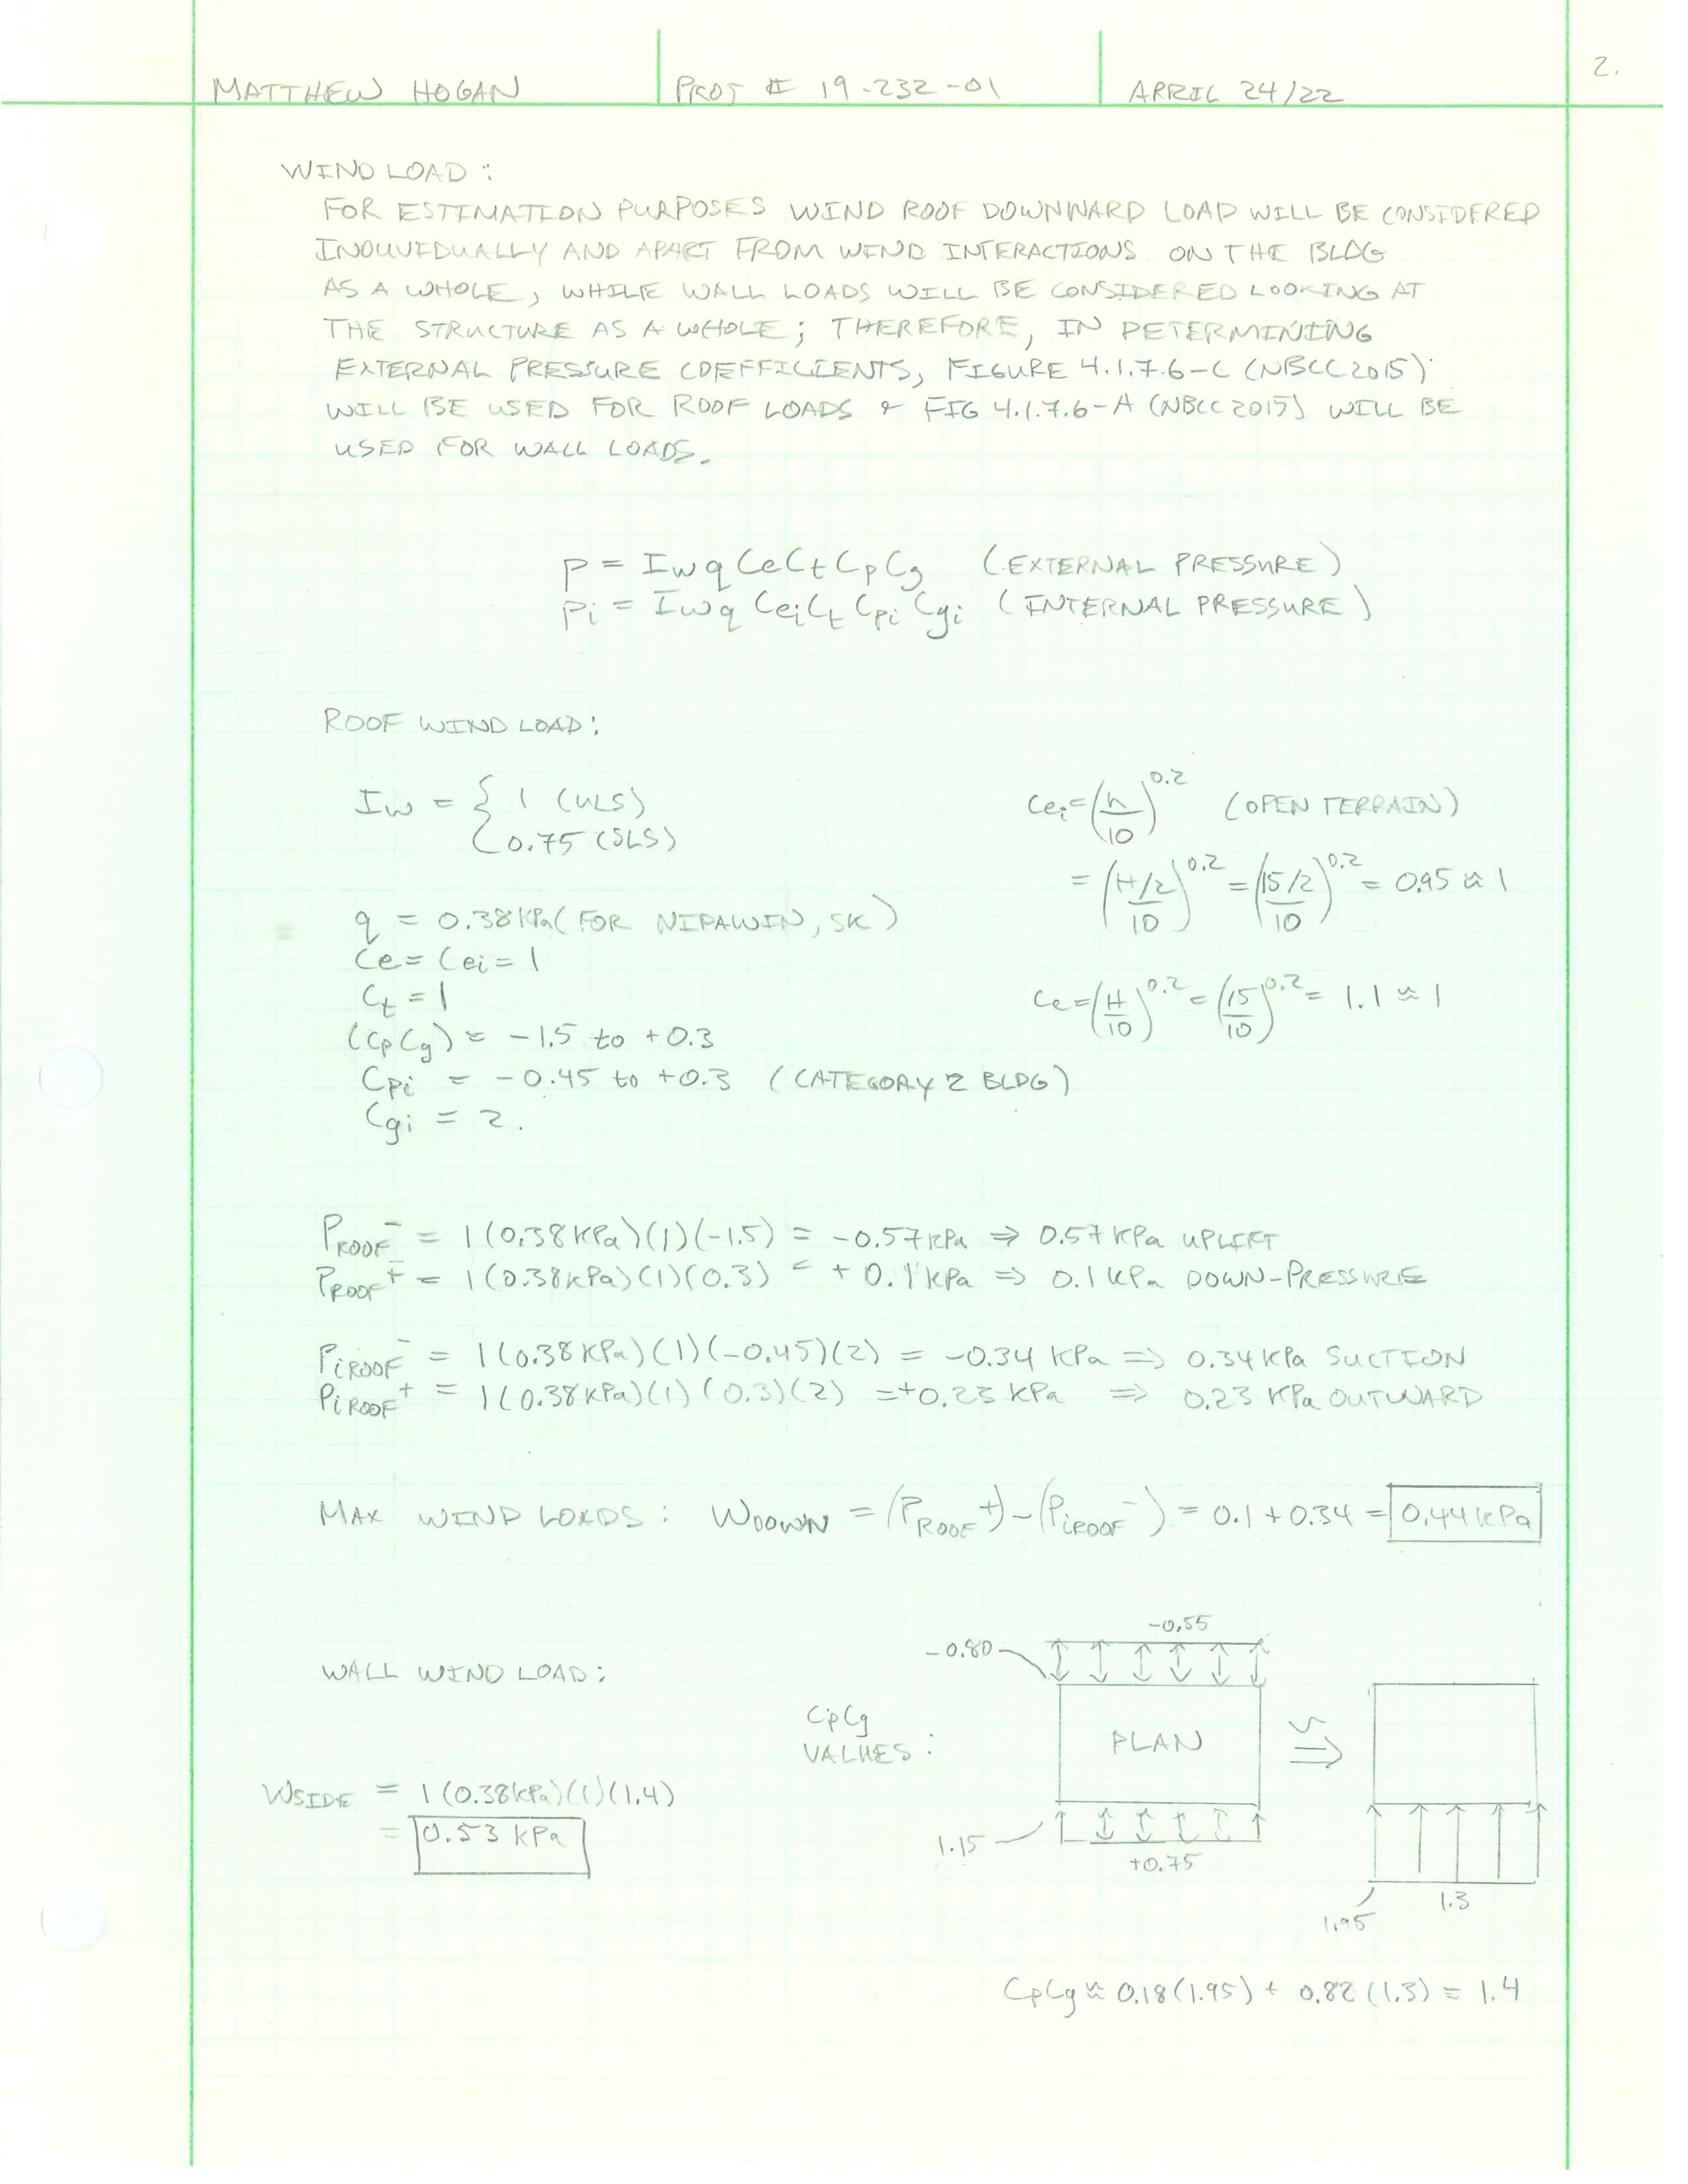 2.
MATTHEW HOGAN PROJ # 19-232-01 APRIL 24/22
WIND LOAD:
FOR ESTIMATION PURPOSES WIND ROOF DOWNWARD LOAD WILL BE CONSIDERED
INDUVIDUALLY AND APART FROM WIND INTERACTIONS ON THE BLDG
AS A WHOLE, WHILE WALL LOADS WILL BE CONSIDERED LOOKING AT
THE STRUCTURE AS A WHOLE; THEREFORE, IN DETERMINING
EXTERNAL PRESSURE COEFFICIENTS, FIGURE 4.1.7.6-C (NBCC 2015)
WILL BE USED FOR ROOF LOADS & FIG 4.1.7.6-A (NBCC 2015) WILL BE
USED FOR WALL LOADS.
P = Iw q Ce Ct Cp Cg (EXTERNAL PRESSURE)
Pi = Iw q Cei Ct Cpi Cgi (INTERNAL PRESSURE)
ROOF WIND LOAD:
Iw = { 1 (ULS)
0.75 (SLS)
Cei = (h/10)^0.2 (OPEN TERRAIN)
= ((H/2)/10)^0.2 = ((15/2)/10)^0.2 = 0.95 ≈ 1
q = 0.38 kPa (FOR NIPAWIN, SK)
Ce = Cei = 1
Ct = 1
Ce = (H/10)^0.2 = (15/10)^0.2 = 1.1 ≈ 1
(CpCg) = -1.5 to +0.3
Cpi = -0.45 to +0.3 (CATEGORY 2 BLDG)
Cgi = 2.
PROOF⁻ = 1(0.38 kPa)(1)(-1.5) = -0.57 kPa ⇒ 0.57 kPa UPLIFT
PROOF⁺ = 1(0.38 kPa)(1)(0.3) = +0.1 kPa ⇒ 0.1 kPa DOWN-PRESSURE
PiROOF⁻ = 1(0.38 kPa)(1)(-0.45)(2) = -0.34 kPa ⇒ 0.34 kPa SUCTION
PiROOF⁺ = 1(0.38 kPa)(1)(0.3)(2) = +0.23 kPa ⇒ 0.23 kPa OUTWARD
MAX WIND LOADS: WDOWN = (PROOF⁺) - (PiROOF⁻) = 0.1 + 0.34 = 0.44 kPa
WALL WIND LOAD:
-0.55
-0.80
CpCg
VALUES:
PLAN
⇒
WSIDE = 1(0.38 kPa)(1)(1.4)
= 0.53 kPa
1.15
+0.75
1.3
1.95
CpCg ≈ 0.18(1.95) + 0.82(1.3) = 1.4